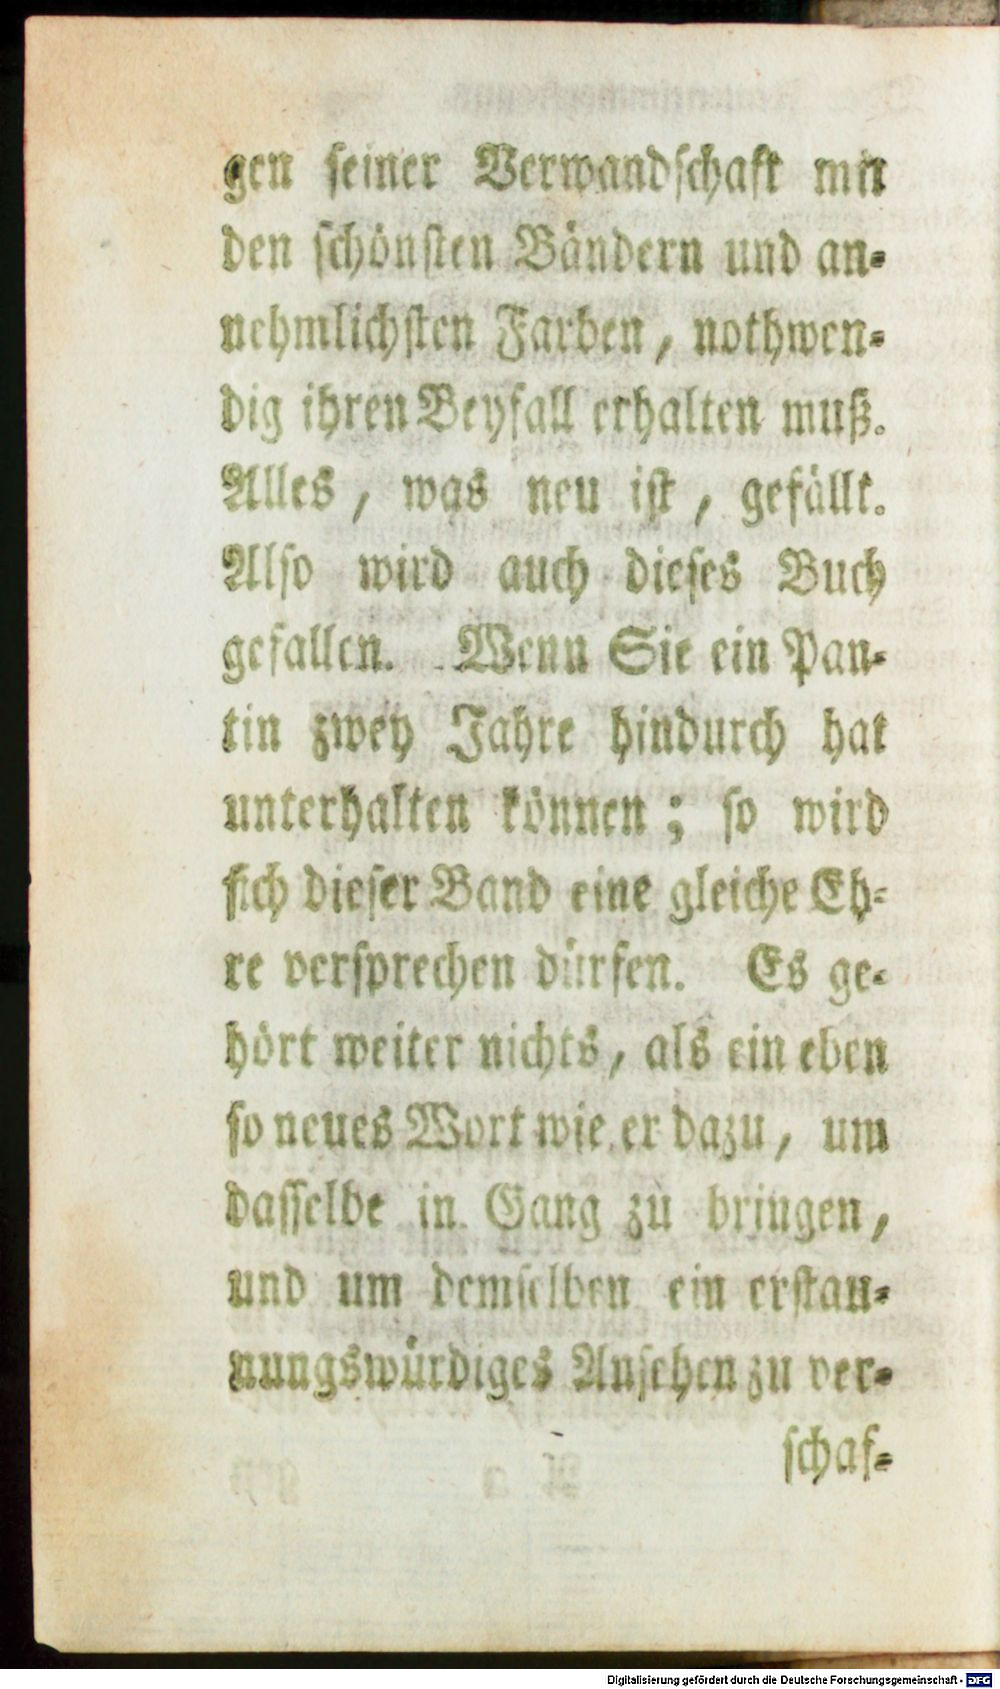 gen seiner Verwandschaft mit
den schönsten Bändern und an-
nehmlichsten Farben, nothwen-
dig ihren Beyfall erhalten muß.
Alles, was neu ist, gefällt.
Also wird auch dieses Buch
gefallen. Wenn Sie ein Pan-
tin zwey Jahre hindurch hat
unterhalten können; so wird
sich dieser Band eine gleiche Eh-
re versprechen dürfen. Es ge-
hört weiter nichts, als ein eben
so neues Wort wie er dazu, um
dasselbe in Gang zu bringen,
und um demselben ein erstau-
nungswürdiges Ansehen zu ver-
schaf-
Digitalisierung gefördert durch die Deutsche Forschungsgemeinschaft - DFG